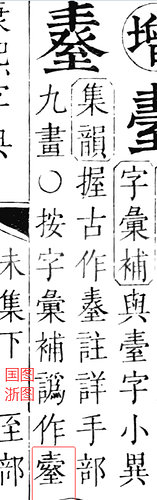 增
字彙補與臺字小異
集韻握古作註詳手部
九畫○按字彙補譌作
康熙字典
未集下
至部
国图
浙图